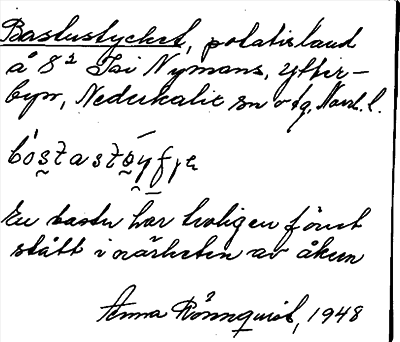 Bastustycket, potatisland
å 8² Isi Nymans, Ytter-
byn, Nederkalix sn o tg, Norrb. l.
En bastu har troligen förut
stått i närheten av åkern
Anna Rönnquist, 1948